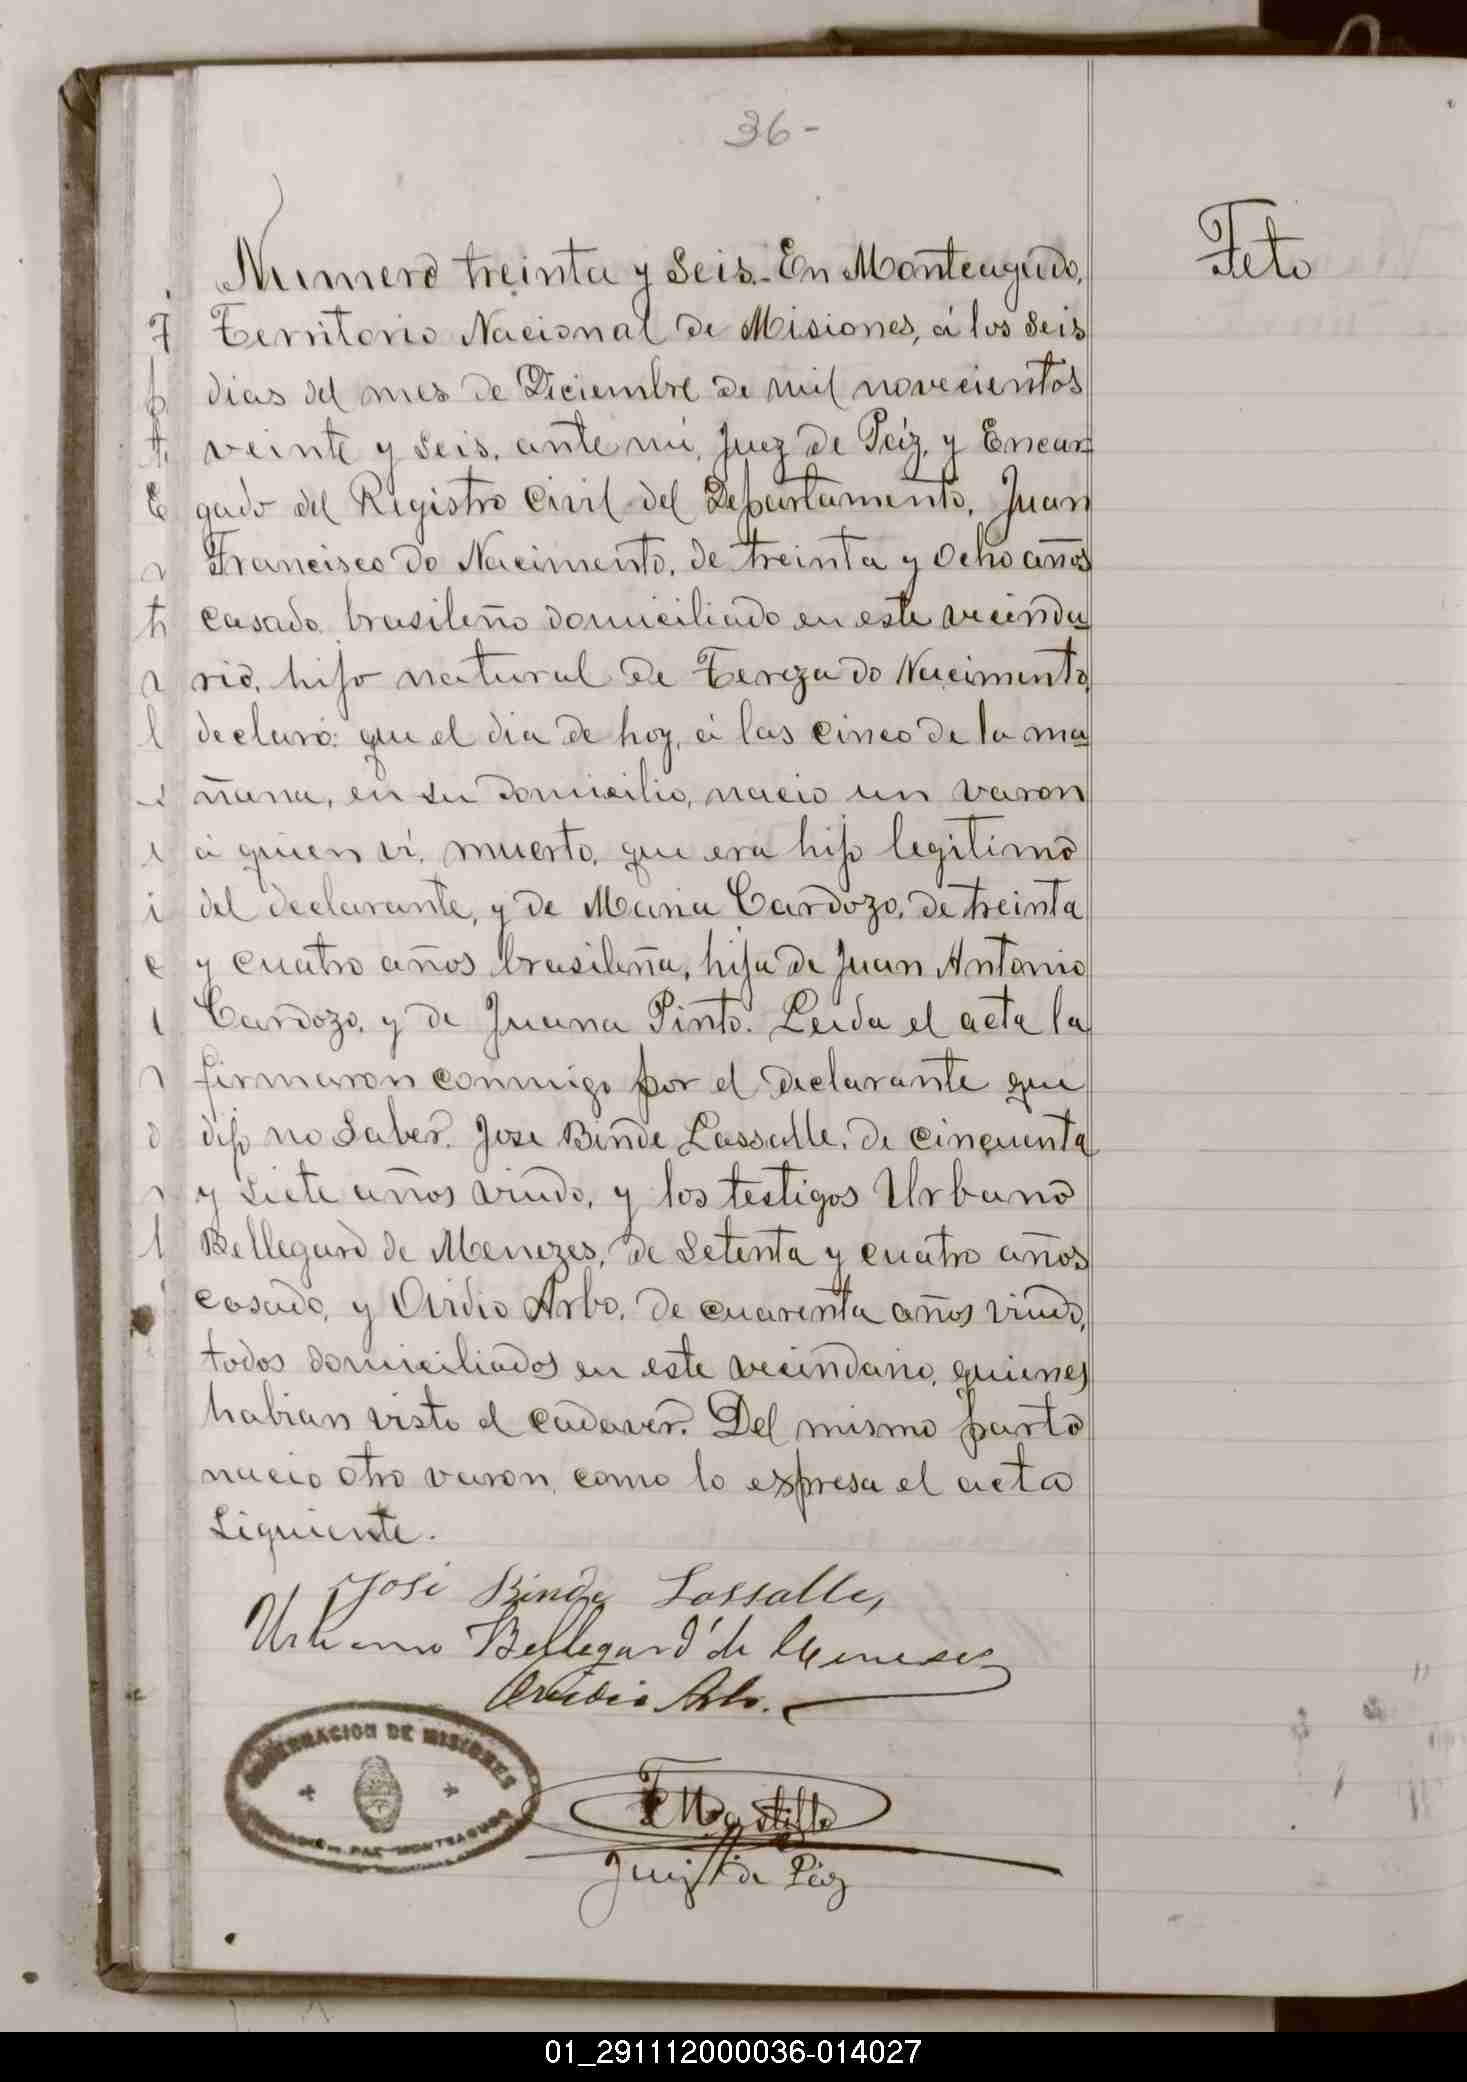 36-
Feto
Numero treinta y seis.- En Monteagudo,
Territorio Nacional de Misiones, á los seis
dias del mes de Diciembre de mil novecientos
veinte y seis, ante mi, Juez de Páz, y Encar
gado del Registro Civil del Departamento, Juan
Francisco do Nacimento, de treinta y ocho años
casado, brasileño domiciliado en este vecinda
rio, hijo natural de Tereza do Nacimento,
declaró: que el dia de hoy, á las cinco de la ma
ñana, en su domicilio, nacio un varon
á quien ví, muerto, que era hijo legitimo
del declarante, y de Maria Cardozo, de treinta
y cuatro años brasileña, hija de Juan Antonio
Cardozo, y de Juana Pinto. Leida el acta la
firmaron conmigo por el declarante que
dijo no saber. Jose Binde Lassalle, de cincuenta
y siete años viudo, y los testigos Urbano
Bellegard de Menezes, de setenta y cuatro años
casado, y Ovidio Arbo, de cuarenta años viudo,
todos domiciliados en este vecindario, quienes
habian visto el cadaver. Del mismo parto
nacio otro varon, como lo expresa el acta
siguiente.
José Binde Lassalle,
Urbano Bellegard de Menezes
Ovidio Arbo.
GOBERNACION DE MISIONES
JUZGADO DE PAZ MONTEAGUDO
Juez de Páz
01_291112000036-014027